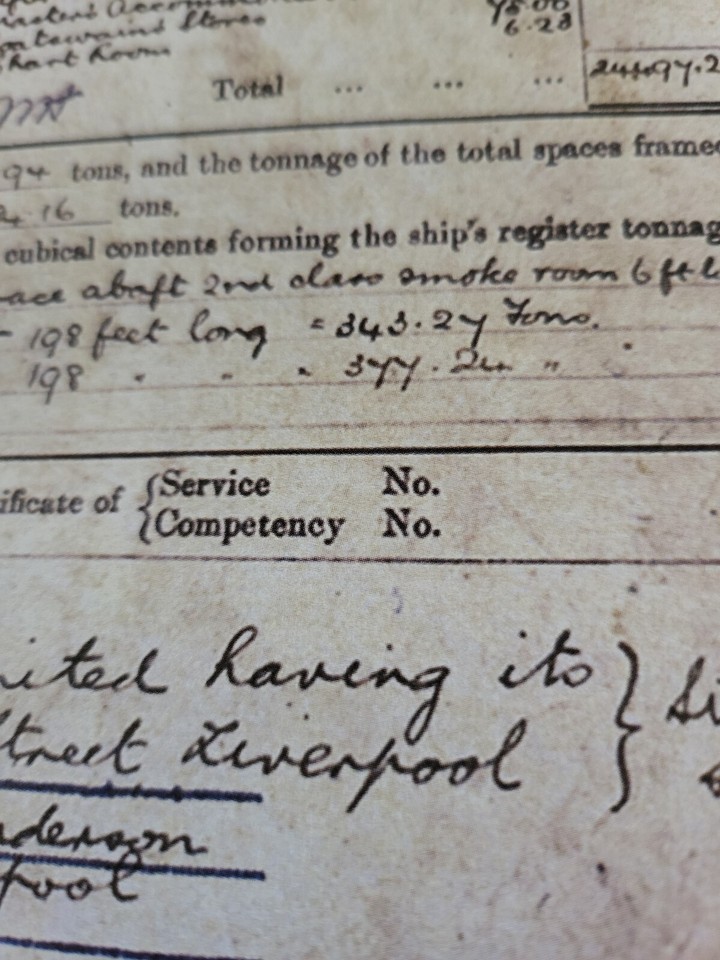 Accom
75.00
Stores
6.28
hart Room
Total ... ... ...
94 tons, and the tonnage of the total spaces framed
16 tons.
cubical contents forming the ship's register tonnag
ace abaft 2nd class smoke room 6 ft l
- 198 feet long = 343.27 Tons.
198 " " " 377.24 "
ificate of { Service No.
Competency No.
ited having its } Li
Street Liverpool
derson
pool